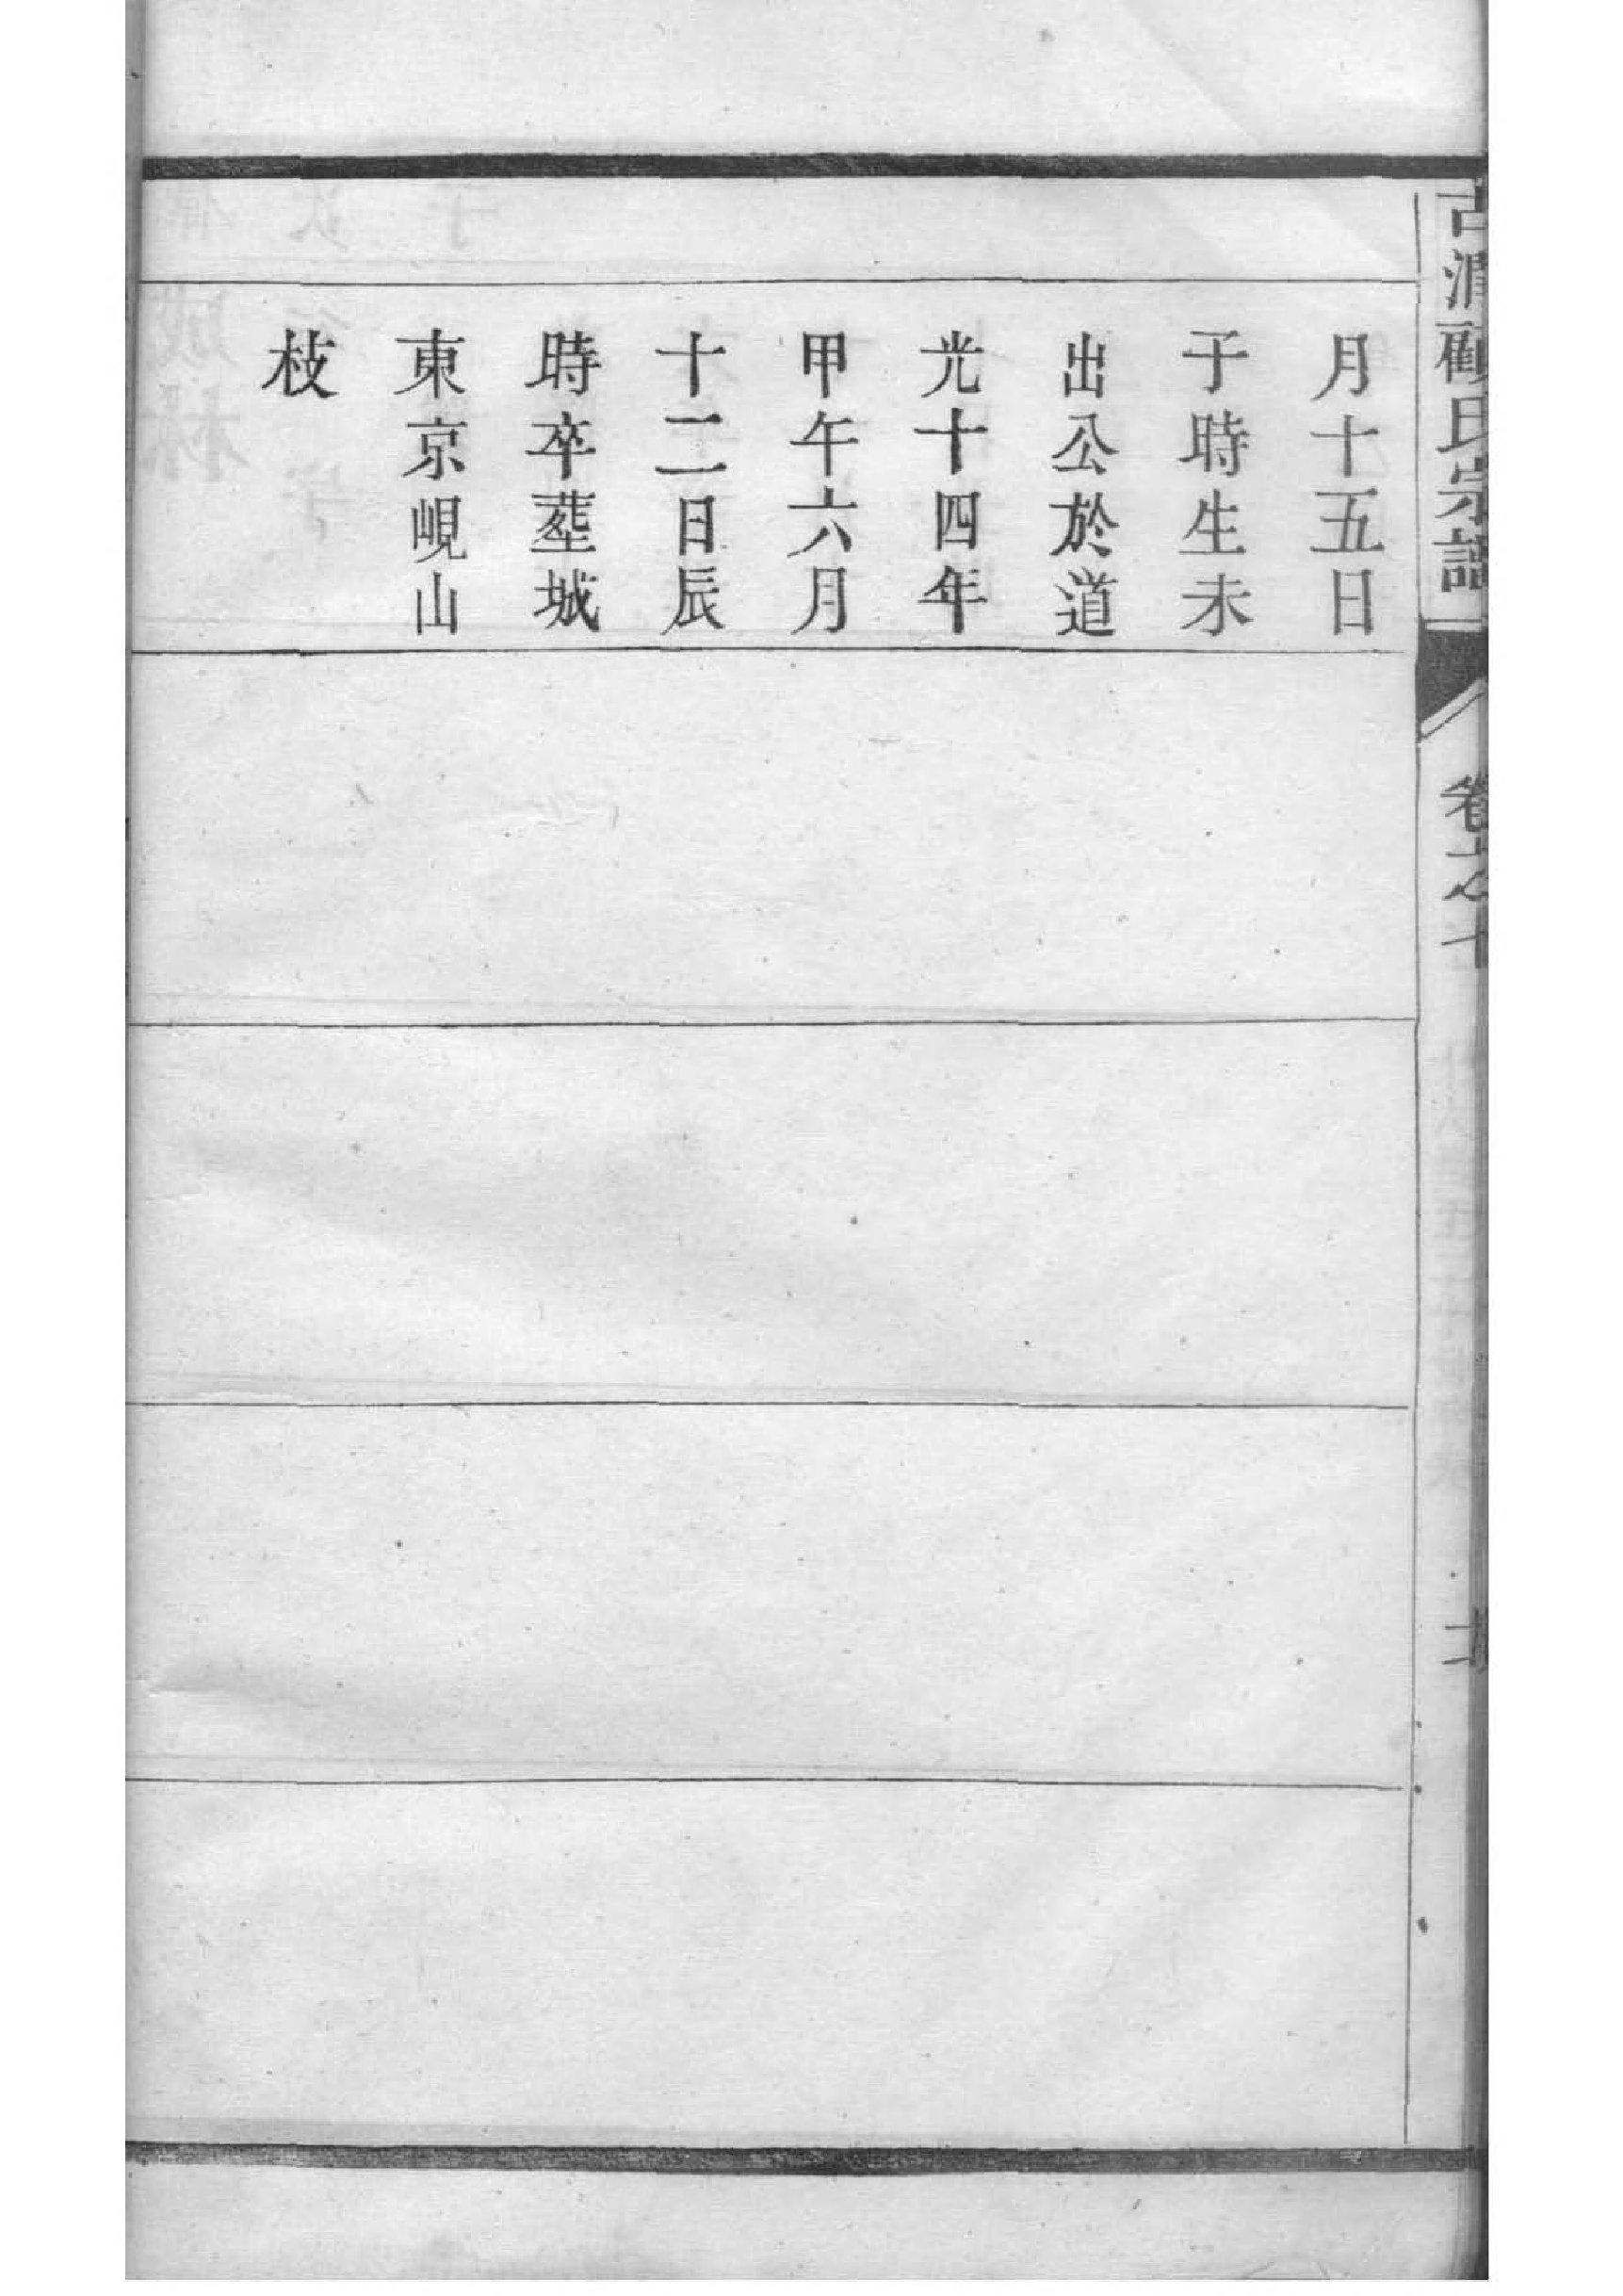 月十五日
于時生未
出公於道
光十四年
甲午六月
十二日辰
時卒塟城
東京峴山
枝
顧氏宗譜
卷六之十